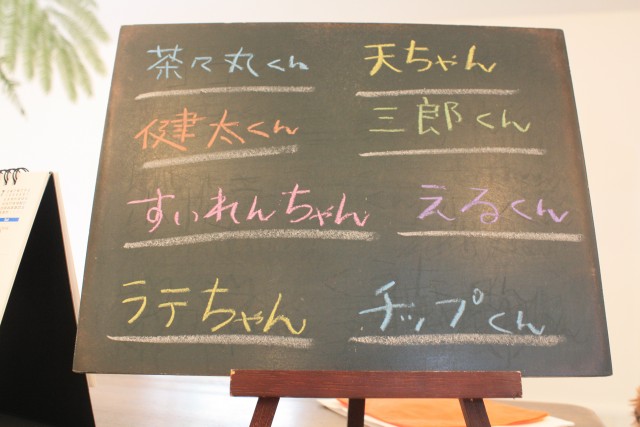 茶々丸くん 天ちゃん
健太くん 三郎くん
すいれんちゃん えるくん
ラテちゃん チップくん